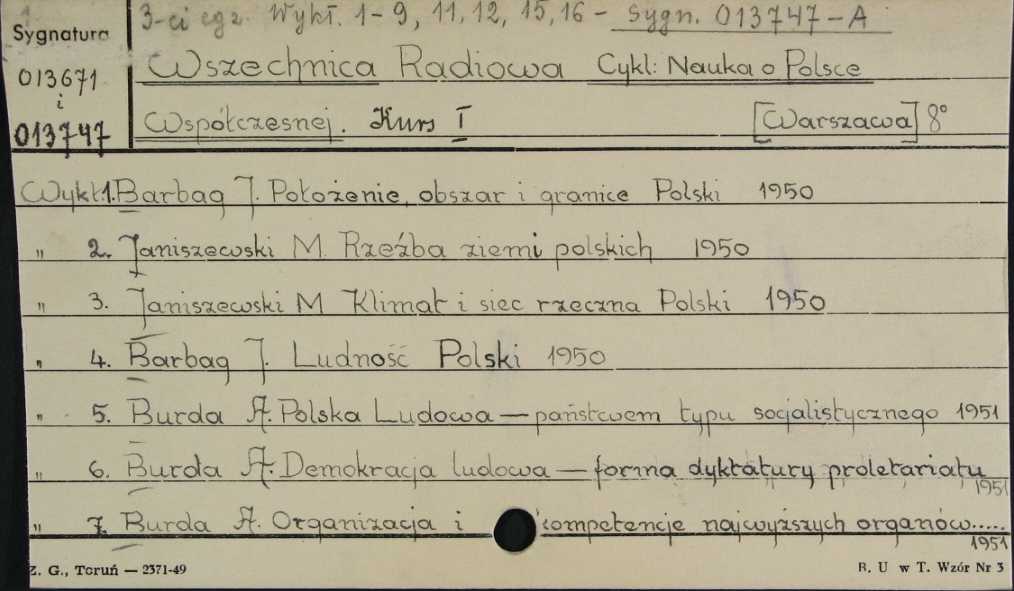 3-ci egz. Wykł. 1-9, 11, 12, 15, 16 - Sygn. 013747-A
Sygnatura
013671
i
013747
Wszechnica Radiowa Cykl: Nauka o Polsce
Współczesnej. Kurs I [Warszawa] 8°
Wykł. 1. Barbag J. Położenie, obszar i granice Polski 1950
" 2. Janiszewski M. Rzeźba ziemi polskich 1950
" 3. Janiszewski M Klimat i siec rzeczna Polski 1950
" 4. Barbag J. Ludność Polski 1950
" 5. Burda A. Polska Ludowa — państwem typu socjalistycznego 1951
" 6. Burda A. Demokracja ludowa — forma dyktatury proletariatu 1951
" 7. Burda A. Organizacja i kompetencje najwyższych organów..... 1951
Z. G., Toruń — 2371-49 B. U w T. Wzór Nr 3